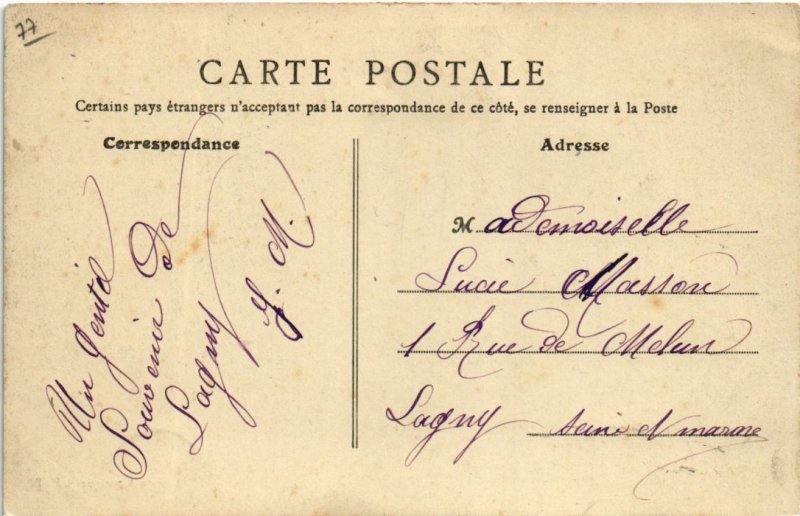 77
CARTE POSTALE
Certains pays étrangers n'acceptant pas la correspondance de ce côté, se renseigner à la Poste
Correspondance
Un gentil
Souvenir de
Lagny
G. M.
Adresse
Mademoiselle
Lucie Masson
1 Rue de Melun
Lagny Seine et marne